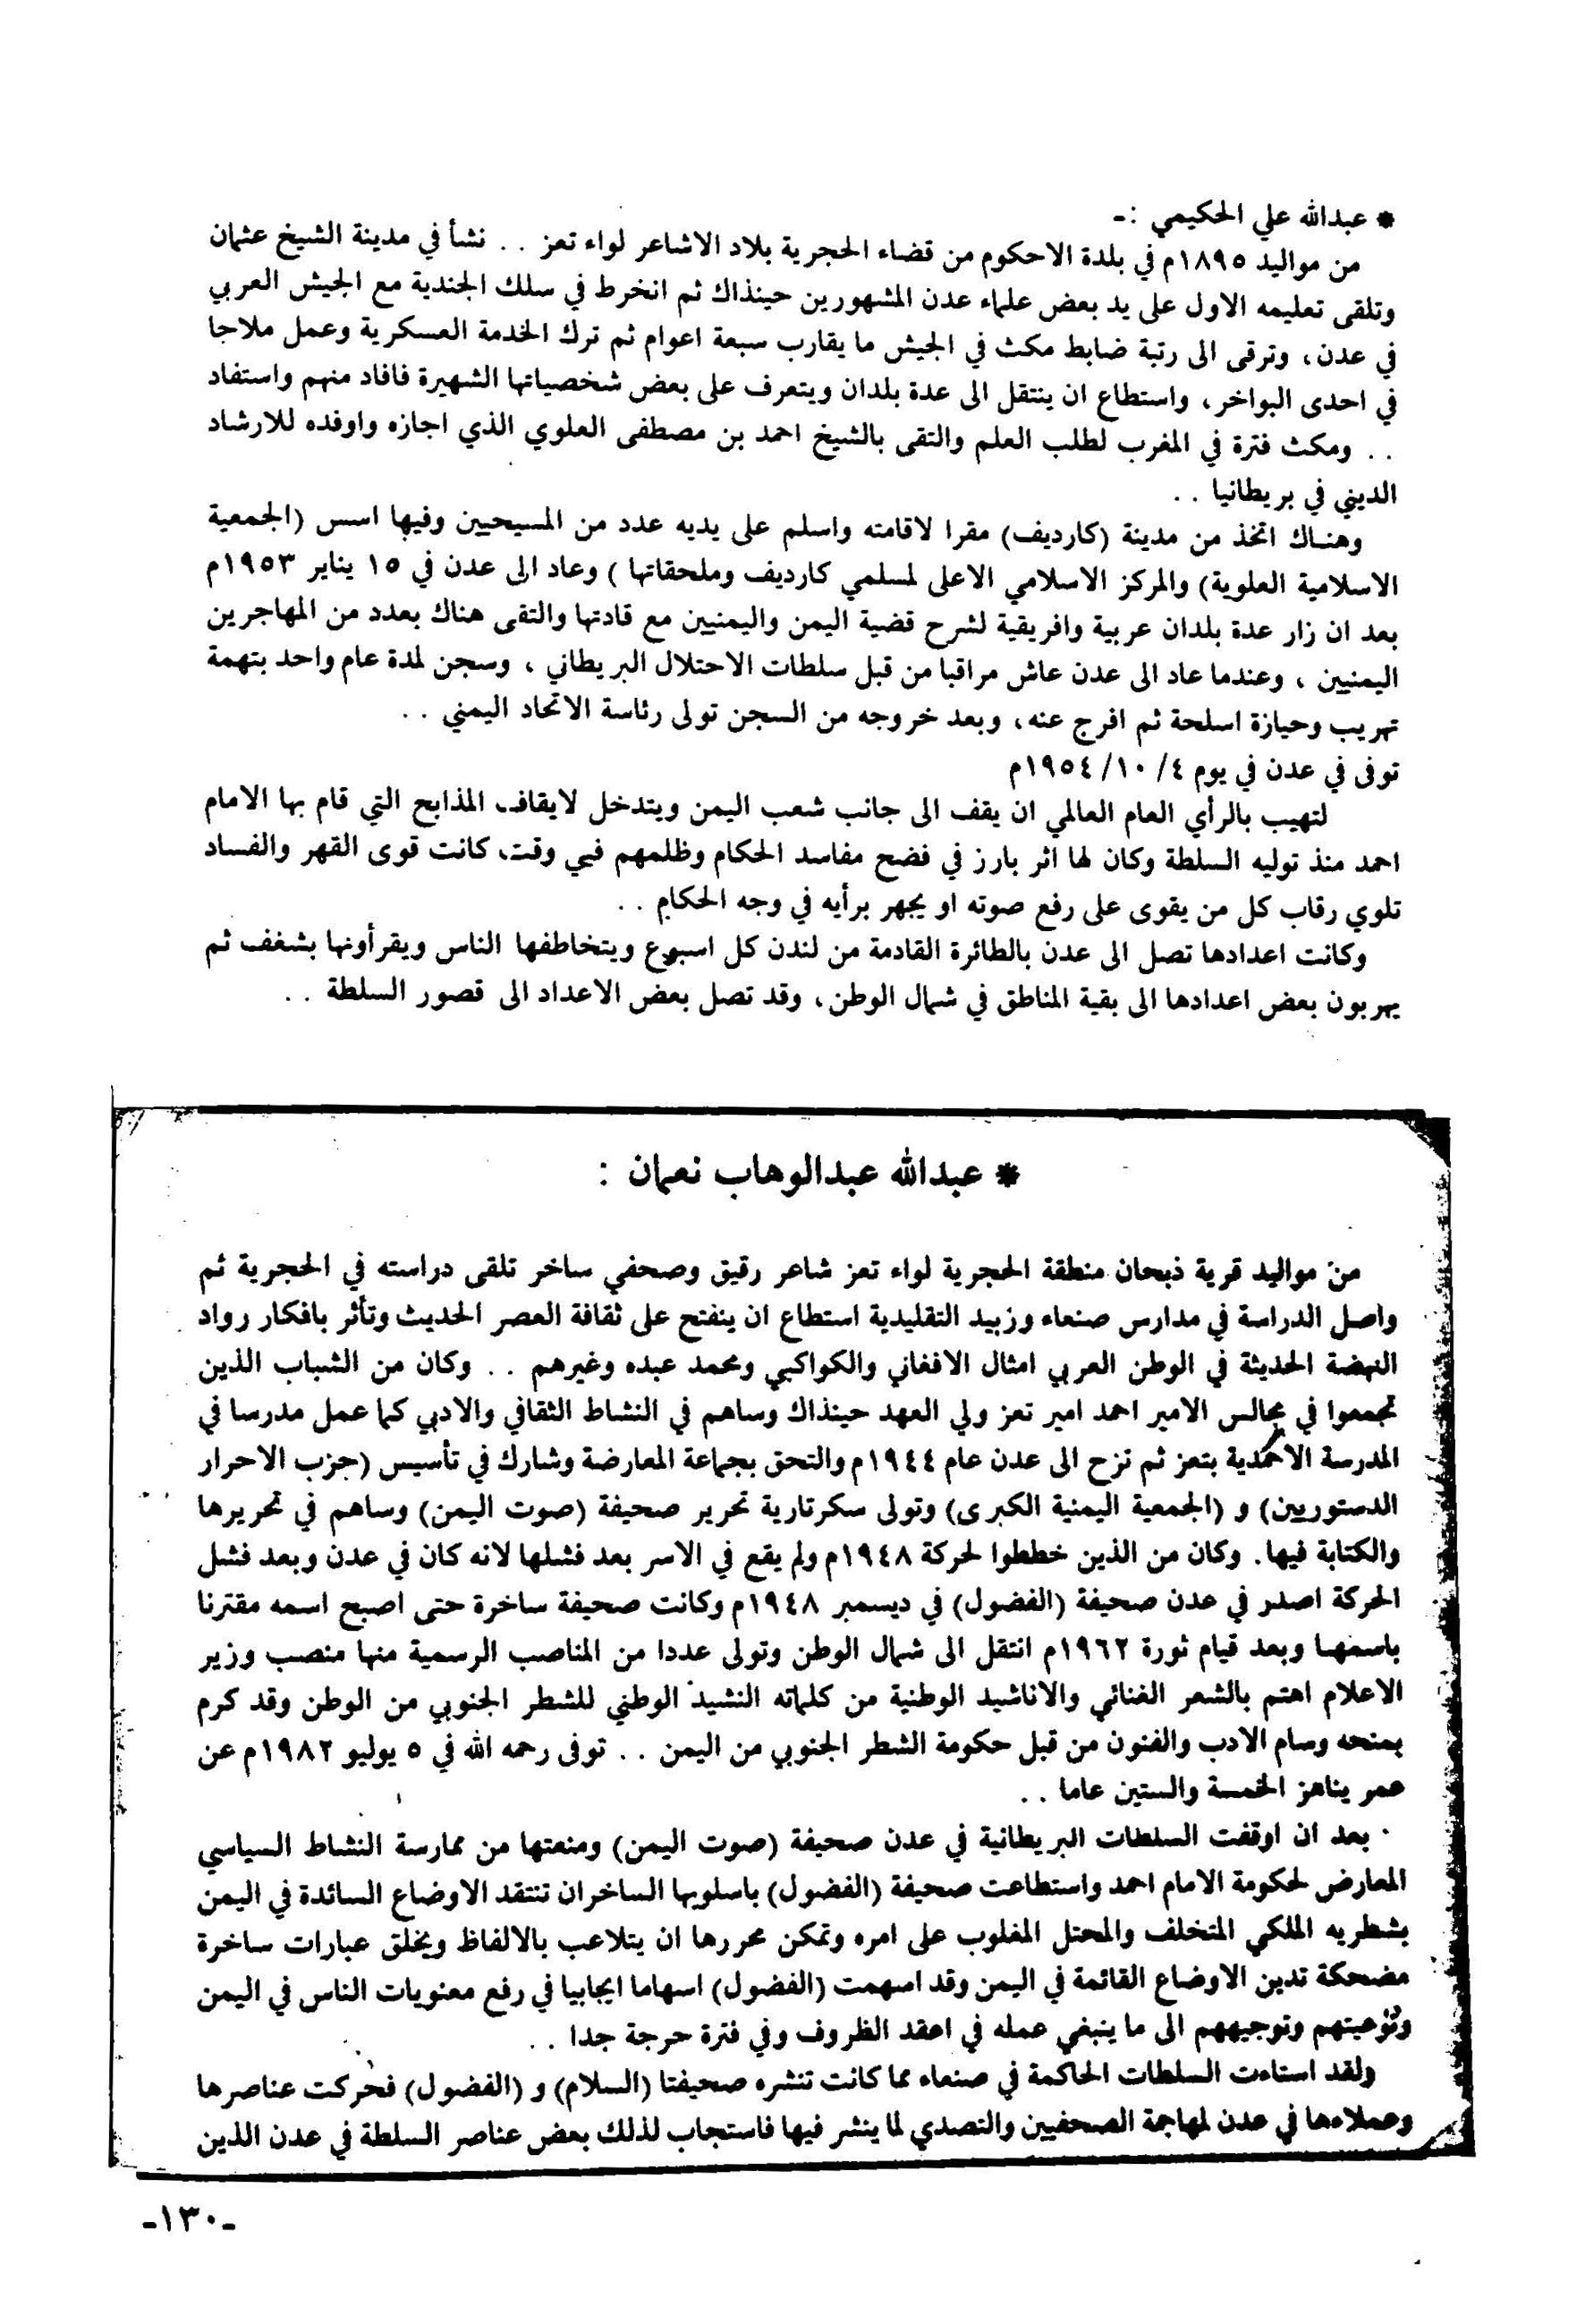 * عبدالله علي الحكيمي :-
من مواليد ١٨٩٥م في بلدة الاحكوم من قضاء الحجرية بلاد الاشاعر لواء تعز . . نشأ في مدينة الشيخ عثمان
وتلقى تعليمه الاول على يد بعض علماء عدن المشهورين حينذاك ثم انخرط في سلك الجندية مع الجيش العربي
في عدن، وترقى الى رتبة ضابط مكث في الجيش ما يقارب سبعة اعوام ثم ترك الخدمة العسكرية وعمل ملاحا
في احدى البواخر، واستطاع ان ينتقل الى عدة بلدان ويتعرف على بعض شخصياتها الشهيرة فافاد منهم واستفاد
. . ومكث فترة في المغرب لطلب العلم والتقى بالشيخ احمد بن مصطفى العلوي الذي اجازه واوفده للارشاد
الديني في بريطانيا . .
وهناك اتخذ من مدينة (كارديف) مقرا لاقامته واسلم على يديه عدد من المسيحيين وفيها اسس (الجمعية
الاسلامية العلوية) والمركز الاسلامي الاعلى لمسلمي كارديف وملحقاتها ) وعاد الى عدن في ١٥ يناير ١٩٥٣م
بعد ان زار عدة بلدان عربية وافريقية لشرح قضية اليمن واليمنيين مع قادتها والتقى هناك بعدد من المهاجرين
اليمنيين ، وعندما عاد الى عدن عاش مراقبا من قبل سلطات الاحتلال البريطاني ، وسجن لمدة عام واحد بتهمة
تهريب وحيازة اسلحة ثم افرج عنه، وبعد خروجه من السجن تولى رئاسة الاتحاد اليمني . .
توفى في عدن في يوم ٤/ ١٠/ ١٩٥٤م
لتهيب بالرأي العام العالمي ان يقف الى جانب شعب اليمن ويتدخل لايقاف المذابح التي قام بها الامام
احمد منذ توليه السلطة وكان لها اثر بارز في فضح مفاسد الحكام وظلمهم فيي وقت، كانت قوى القهر والفساد
تلوي رقاب كل من يقوى على رفع صوته او يجهر برأيه في وجه الحكام . .
وكانت اعدادها تصل الى عدن بالطائرة القادمة من لندن كل اسبوع ويتخاطفها الناس ويقرأونها بشغف ثم
يهربون بعض اعدادها الى بقية المناطق في شمال الوطن، وقد تصل بعض الاعداد الى قصور السلطة . .
* عبدالله عبدالوهاب نعمان :
من مواليد قرية ذبحان منطقة الحجرية لواء تعز شاعر رقيق وصحفي ساخر تلقى دراسته في الحجرية ثم
واصل الدراسة في مدارس صنعاء وزبيد التقليدية استطاع ان ينفتح على ثقافة العصر الحديث وتأثر بافكار رواد
النهضة الحديثة في الوطن العربي امثال الافغاني والكواكبي ومحمد عبده وغيرهم . . وكان من الشباب الذين
تجمعوا في مجالس الامير احمد امير تعز ولي العهد حينذاك وساهم في النشاط الثقافي والادبي كما عمل مدرسا في
المدرسة الاحمدية بتعز ثم نزح الى عدن عام ١٩٤٤م والتحق بجماعة المعارضة وشارك في تأسيس (حزب الاحرار
الدستوريين) و (الجمعية اليمنية الكبرى) وتولى سكرتارية تحرير صحيفة (صوت اليمن) وساهم في تحريرها
والكتابة فيها. وكان من الذين خططوا لحركة ١٩٤٨م ولم يقع في الاسر بعد فشلها لانه كان في عدن وبعد فشل
الحركة اصدر في عدن صحيفة (الفضول) في ديسمبر ١٩٤٨م وكانت صحيفة ساخرة حتى اصبح اسمه مقترنا
باسمها وبعد قيام ثورة ١٩٦٢م انتقل الى شمال الوطن وتولى عددا من المناصب الرسمية منها منصب وزير
الاعلام اهتم بالشعر الغنائي والاناشيد الوطنية من كلماته النشيد الوطني للشطر الجنوبي من الوطن وقد كرم
بمنحه وسام الادب والفنون من قبل حكومة الشطر الجنوبي من اليمن . . توفى رحمه الله في ٥ يوليو ١٩٨٢م عن
عمر يناهز الخمسة والستين عاما . .
بعد ان اوقفت السلطات البريطانية في عدن صحيفة (صوت اليمن) ومنعتها من ممارسة النشاط السياسي
المعارض لحكومة الامام احمد واستطاعت صحيفة (الفضول) باسلوبها الساخران تنتقد الاوضاع السائدة في اليمن
بشطريه الملكي المتخلف والمحتل المغلوب على امره وتمكن محررها ان يتلاعب بالالفاظ ويخلق عبارات ساخرة
مضحكة تدين الاوضاع القائمة في اليمن وقد اسهمت (الفضول) اسهاما ايجابيا في رفع معنويات الناس في اليمن
وتوعيتهم وتوجيههم الى ما ينبغي عمله في اعقد الظروف وفي فترة حرجة جدا . .
ولقد استاءت السلطات الحاكمة في صنعاء مما كانت تنشره صحيفتا (السلام) و (الفضول) فحركت عناصرها
وعملاءها في عدن لمهاجمة الصحفيين والتصدي لما ينشر فيها فاستجاب لذلك بعض عناصر السلطة في عدن الذين
-١٣٠-